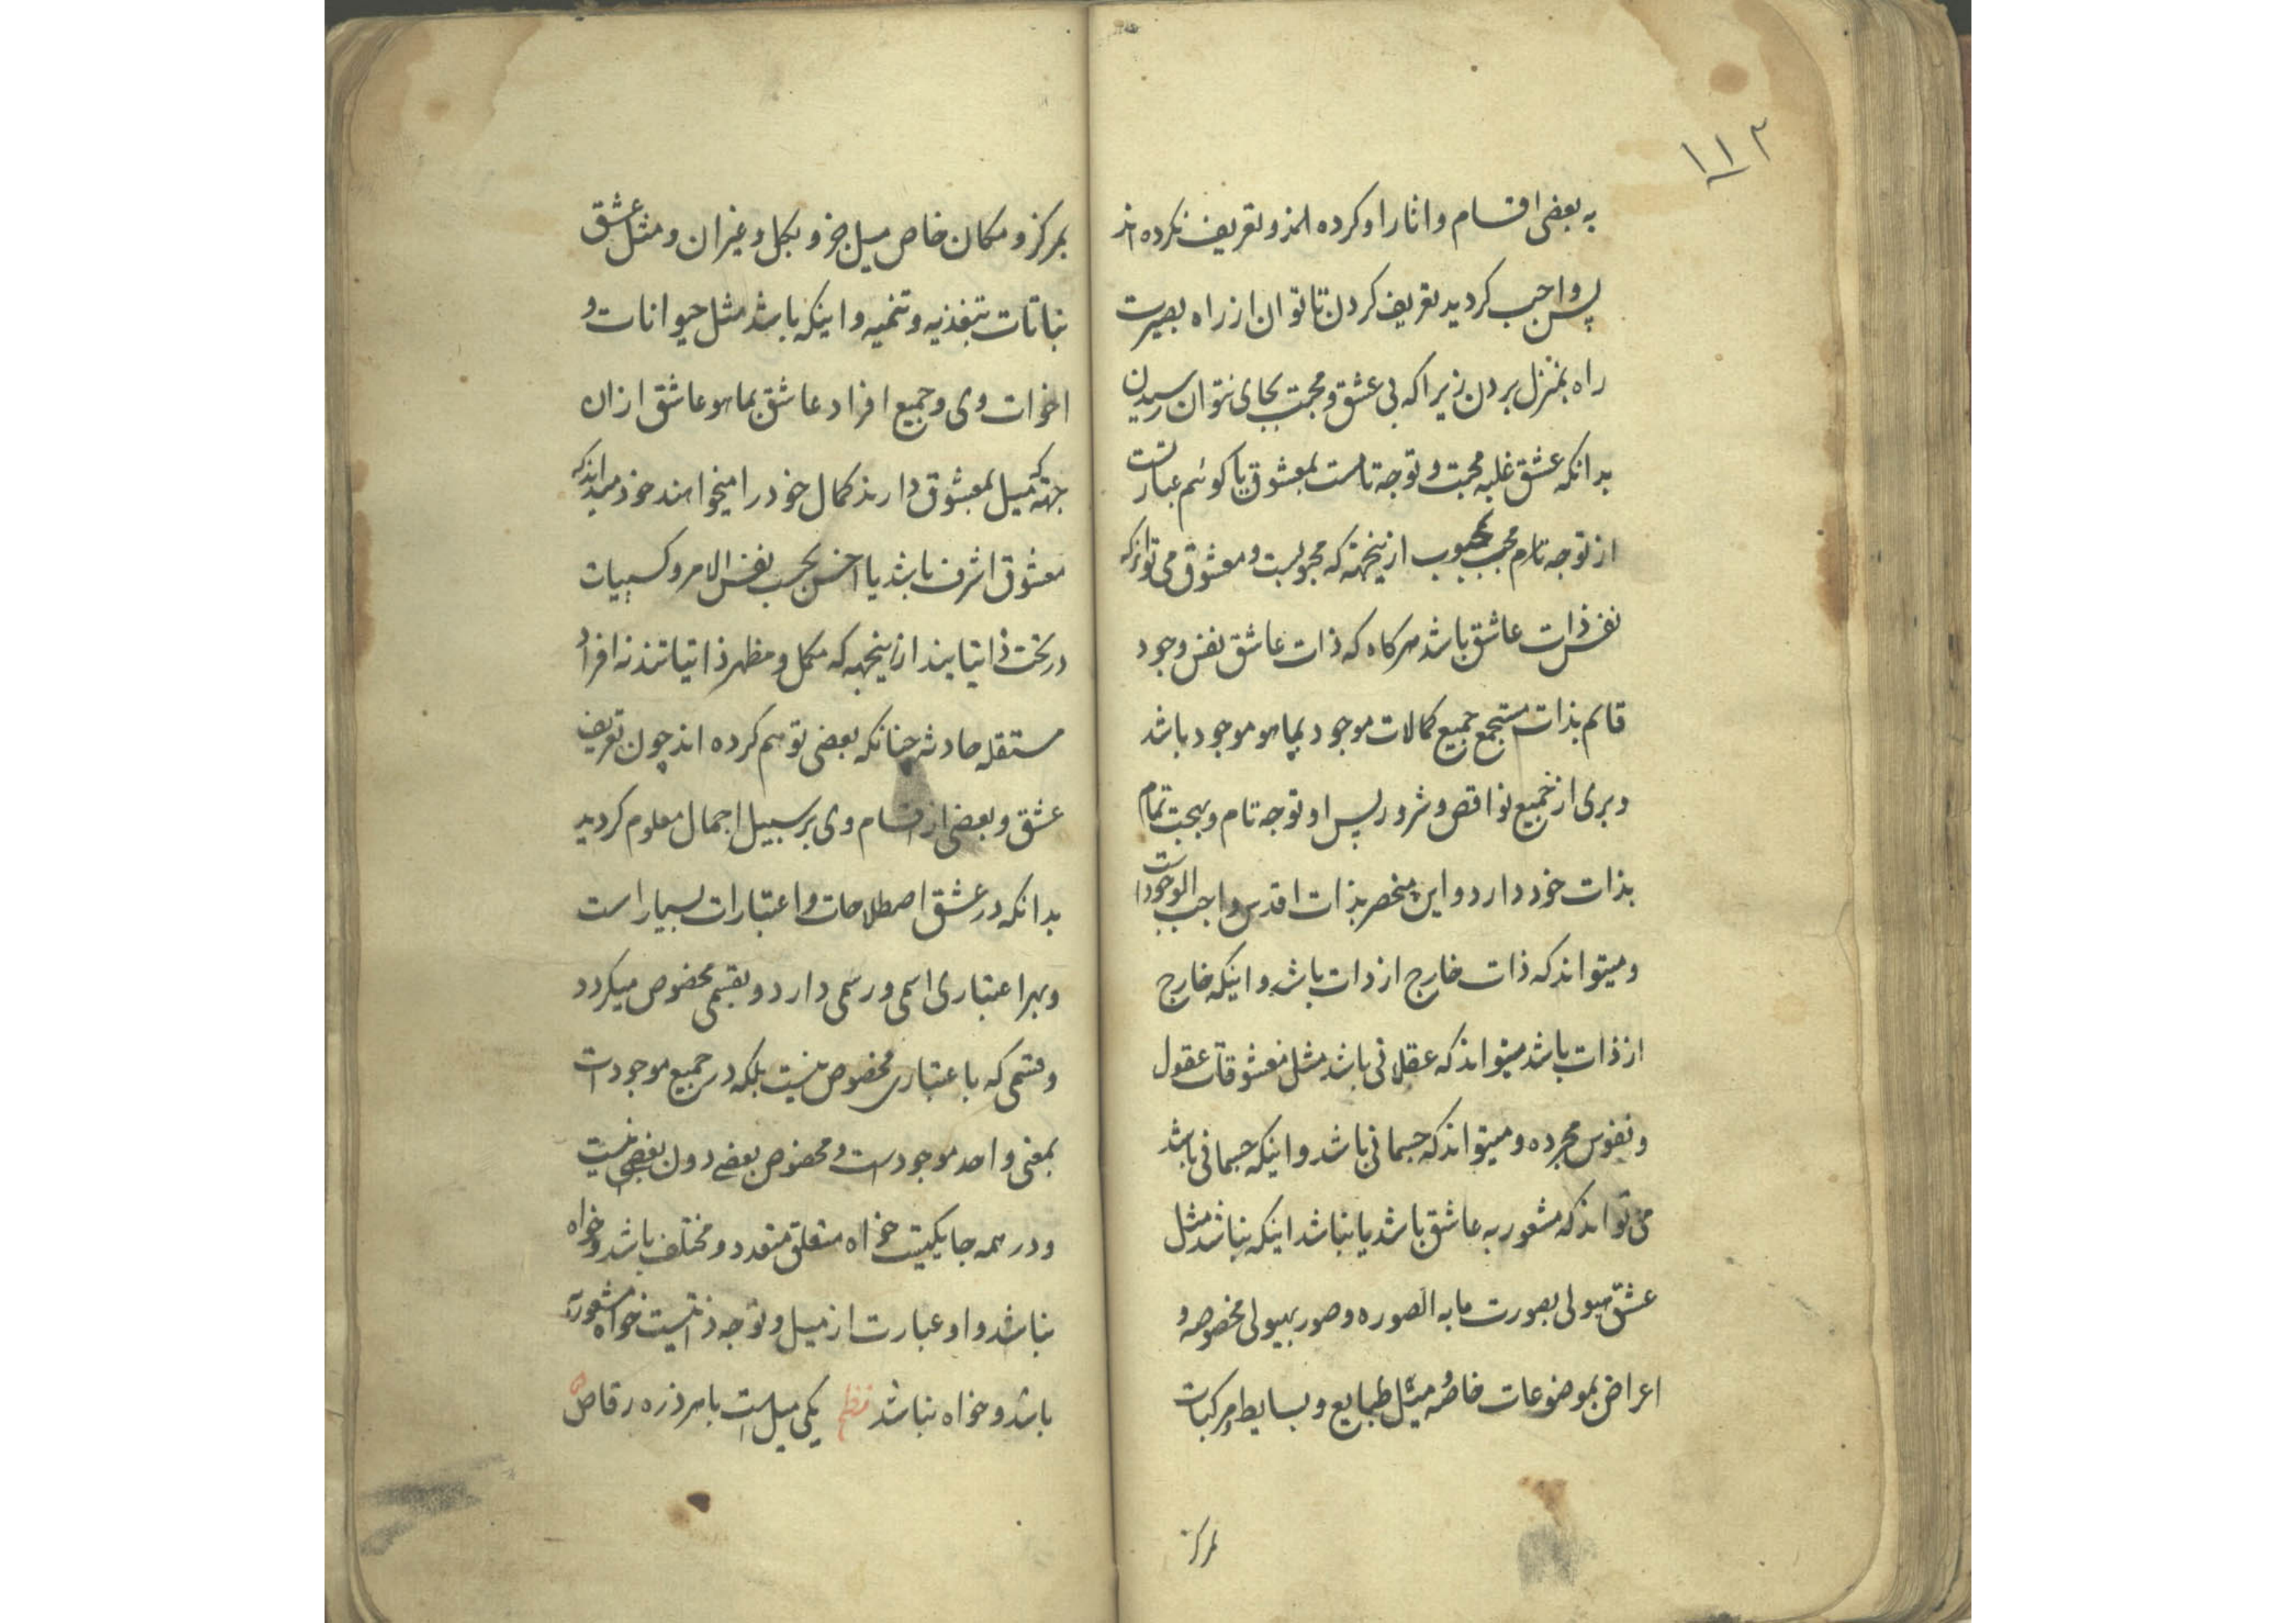 ۱۱۲
به بعضی اقسام و اثار او کرده اند و تعریف نکرده اند
پس واجب کردید تعریف کردن تا توان از راه بصیرت
راه بمنزل بردن زیرا که بی عشق و محبت بجای نتوان رسیدن
بدانکه عشق غلبه محبت و توجه تامست بمعشوق یا کوئیم عبارتست
از توجه تام محب بمحبوب ازینجهته که محبوبست و معشوق می تواند که
نفس ذات عاشق باشد هرکاه که ذات عاشق نفس وجود
قایم بذات مستجمع جمیع کمالات موجود بما هو موجود باشد
و بری از جمیع نواقص و شرور پس او توجه تام و بهجت تمام
بذات خود دارد و این منحصر بذات اقدس واجب الوجود است
و میتواند که ذات خارج از ذات باشد و اینکه خارج
از ذات باشد میتواند که عقلانی باشد مثل معشوقات عقول
و نفوس مجرده و میتواند که جسمانی باشد و اینکه جسمانی باشد
می تواند که مشعور به عاشق باشد یا نباشد اینکه نباشد مثل
عشق هیولی بصورت مابه الصوره و صور بهیولی مخصوصه و
اعراض بموضوعات خاصه و مثل طبایع و بسایط و مرکبات
بمرکز
بمرکز و مکان خاص میل جزو بکل و غیر ان و مثل عشق
نباتات بتغذیه و تنمیه و اینکه باشد مثل حیوانات و
اخوات وی و جمیع افراد عاشق بما هو عاشق از ان
جهته که میل بمعشوق دارند کمال خود را میخواهند خود میدانند که
معشوق اشرف باشد یا اخس بحسب نفس الامر و کسبیات
در تحت ذاتیاتند ازینجهه که مکمل و مظهر ذاتیاتند نه افراد
مستقله حادثه چنانکه بعضی توهم کرده اند چون تعریف
عشق و بعضی از اقسام وی بر سبیل اجمال معلوم کردید
بدانکه در عشق اصطلاحات و اعتبارات بسیار است
و بهر اعتباری اسمی و رسمی دارد و بقسمی مخصوص میکردد
و قسمی که باعتباری مخصوص نیست بلکه در جمیع موجودات
بمعنی واحد موجودست و مخصوص بعضی دون بعضی نیست
و در همه جا یکیست خواه متعلق متعدد و مختلف باشد و خواه
نباشد و او عبارت از میل و توجه ذاتیست خواه مشعور به
باشد و خواه نباشد نظم یکی میل است با هر ذره رقاص